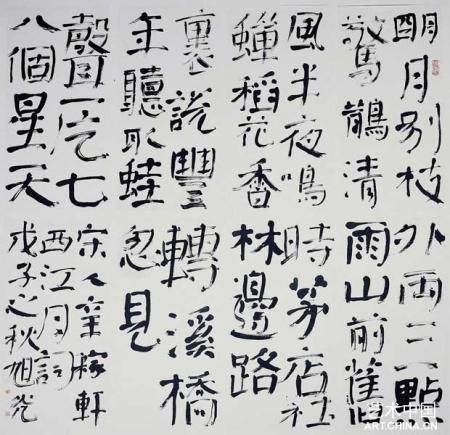 明月别枝
驚鵲清
風半夜鳴
蟬稻花香
裏説豐
年聽取蛙
聲一片七
八個星天
外両三點
雨山前舊
時茅店社
林邊路
轉溪橋
忽見
宋人辛稼軒
西江月詞
戊子之秋旭光
艺术中国
ART.CHINA.CN